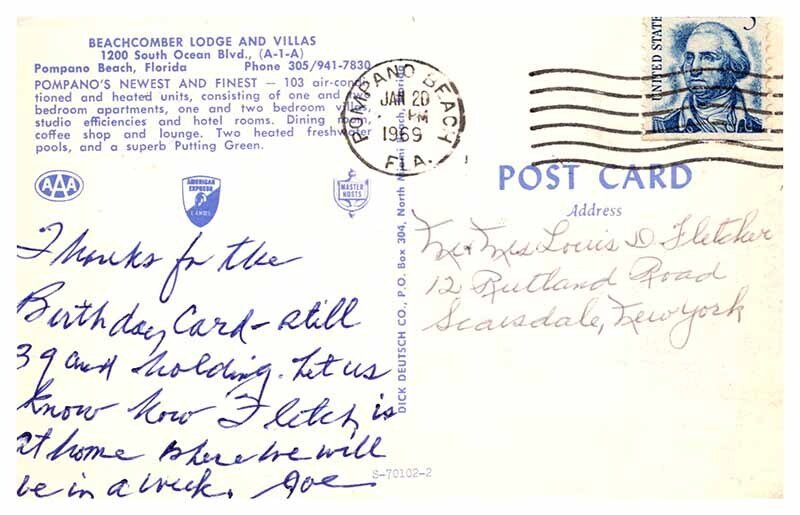 BEACHCOMBER LODGE AND VILLAS
1200 South Ocean Blvd., (A-1-A)
Pompano Beach, Florida Phone 305/941-7830
POMPANO'S NEWEST AND FINEST — 103 air-condi-
tioned and heated units, consisting of one and
bedroom apartments, one and two bedroom
studio efficiencies and hotel rooms. Dining room,
coffee shop and lounge. Two heated freshwater
pools, and a superb Putting Green.
AAA
AMERICAN
EXPRESS
CARDS
MASTER
HOSTS
Thanks for the
Birthday Card - still
39 and holding. Let us
know how Fletch is
at home where we will
be in a week. Joe
DICK DEUTSCH CO., P.O. Box 304, North Miami Beach, Florida
S-70102-2
POMPANO BEACH
JAN 20
PM
1969
FLA.
UNITED STATE
5
POST CARD
Address
Mr & Mrs Louis D. Fletcher
12 Rutland Road
Scarsdale, New York